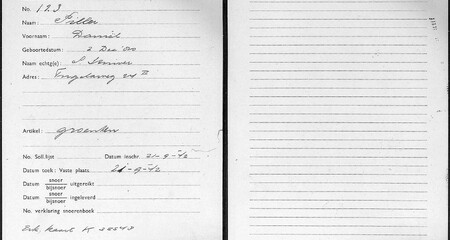 No. 123
Naam:
Voornaam: Daniël
Geboortedatum: 2 Dec '00
Naam echtg(e): S.
Adres: 24 II
Artikel: groenten
No. Soll.lijst Datum inschr. 21-9-'42
Datum toek: Vaste plaats 21-9-'42
Datum snoer/bijsnoer uitgereikt
Datum snoer/bijsnoer ingeleverd
No. verklaring snoerenboek
kaart K